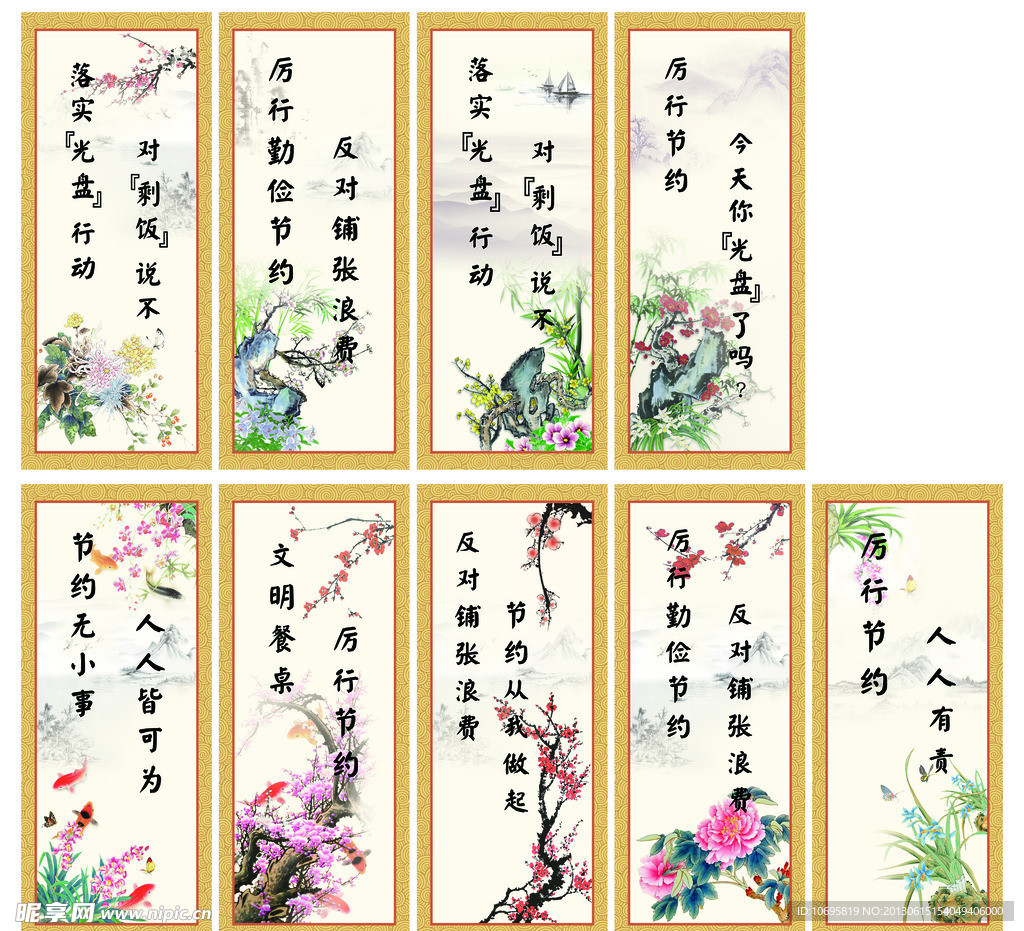 落实『光盘』行动
对『剩饭』说不
厉行勤俭节约
反对铺张浪费
落实『光盘』行动
对『剩饭』说不
厉行节约
今天你『光盘』了吗？
节约无小事
人人皆可为
文明餐桌
厉行节约
反对铺张浪费
节约从我做起
厉行勤俭节约
反对铺张浪费
厉行节约
人人有责
昵享网 www.nipic.cn
ID:10695819 NO:20130615154049406000